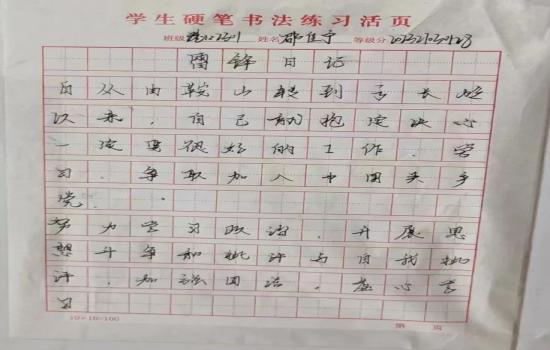 学生硬笔书法练习活页
班级 2201 姓名 邵佳宁 等级分
雷锋日记
自从由鞍山转到弓长岭
以来,自己就抱定决心
一定要很好的工作,学
习,争取加入中国共产
党.
努力学习政治,开展思
想斗争和批评与自我批
评,加强团结,虚心学
习
10×10=100
第 页